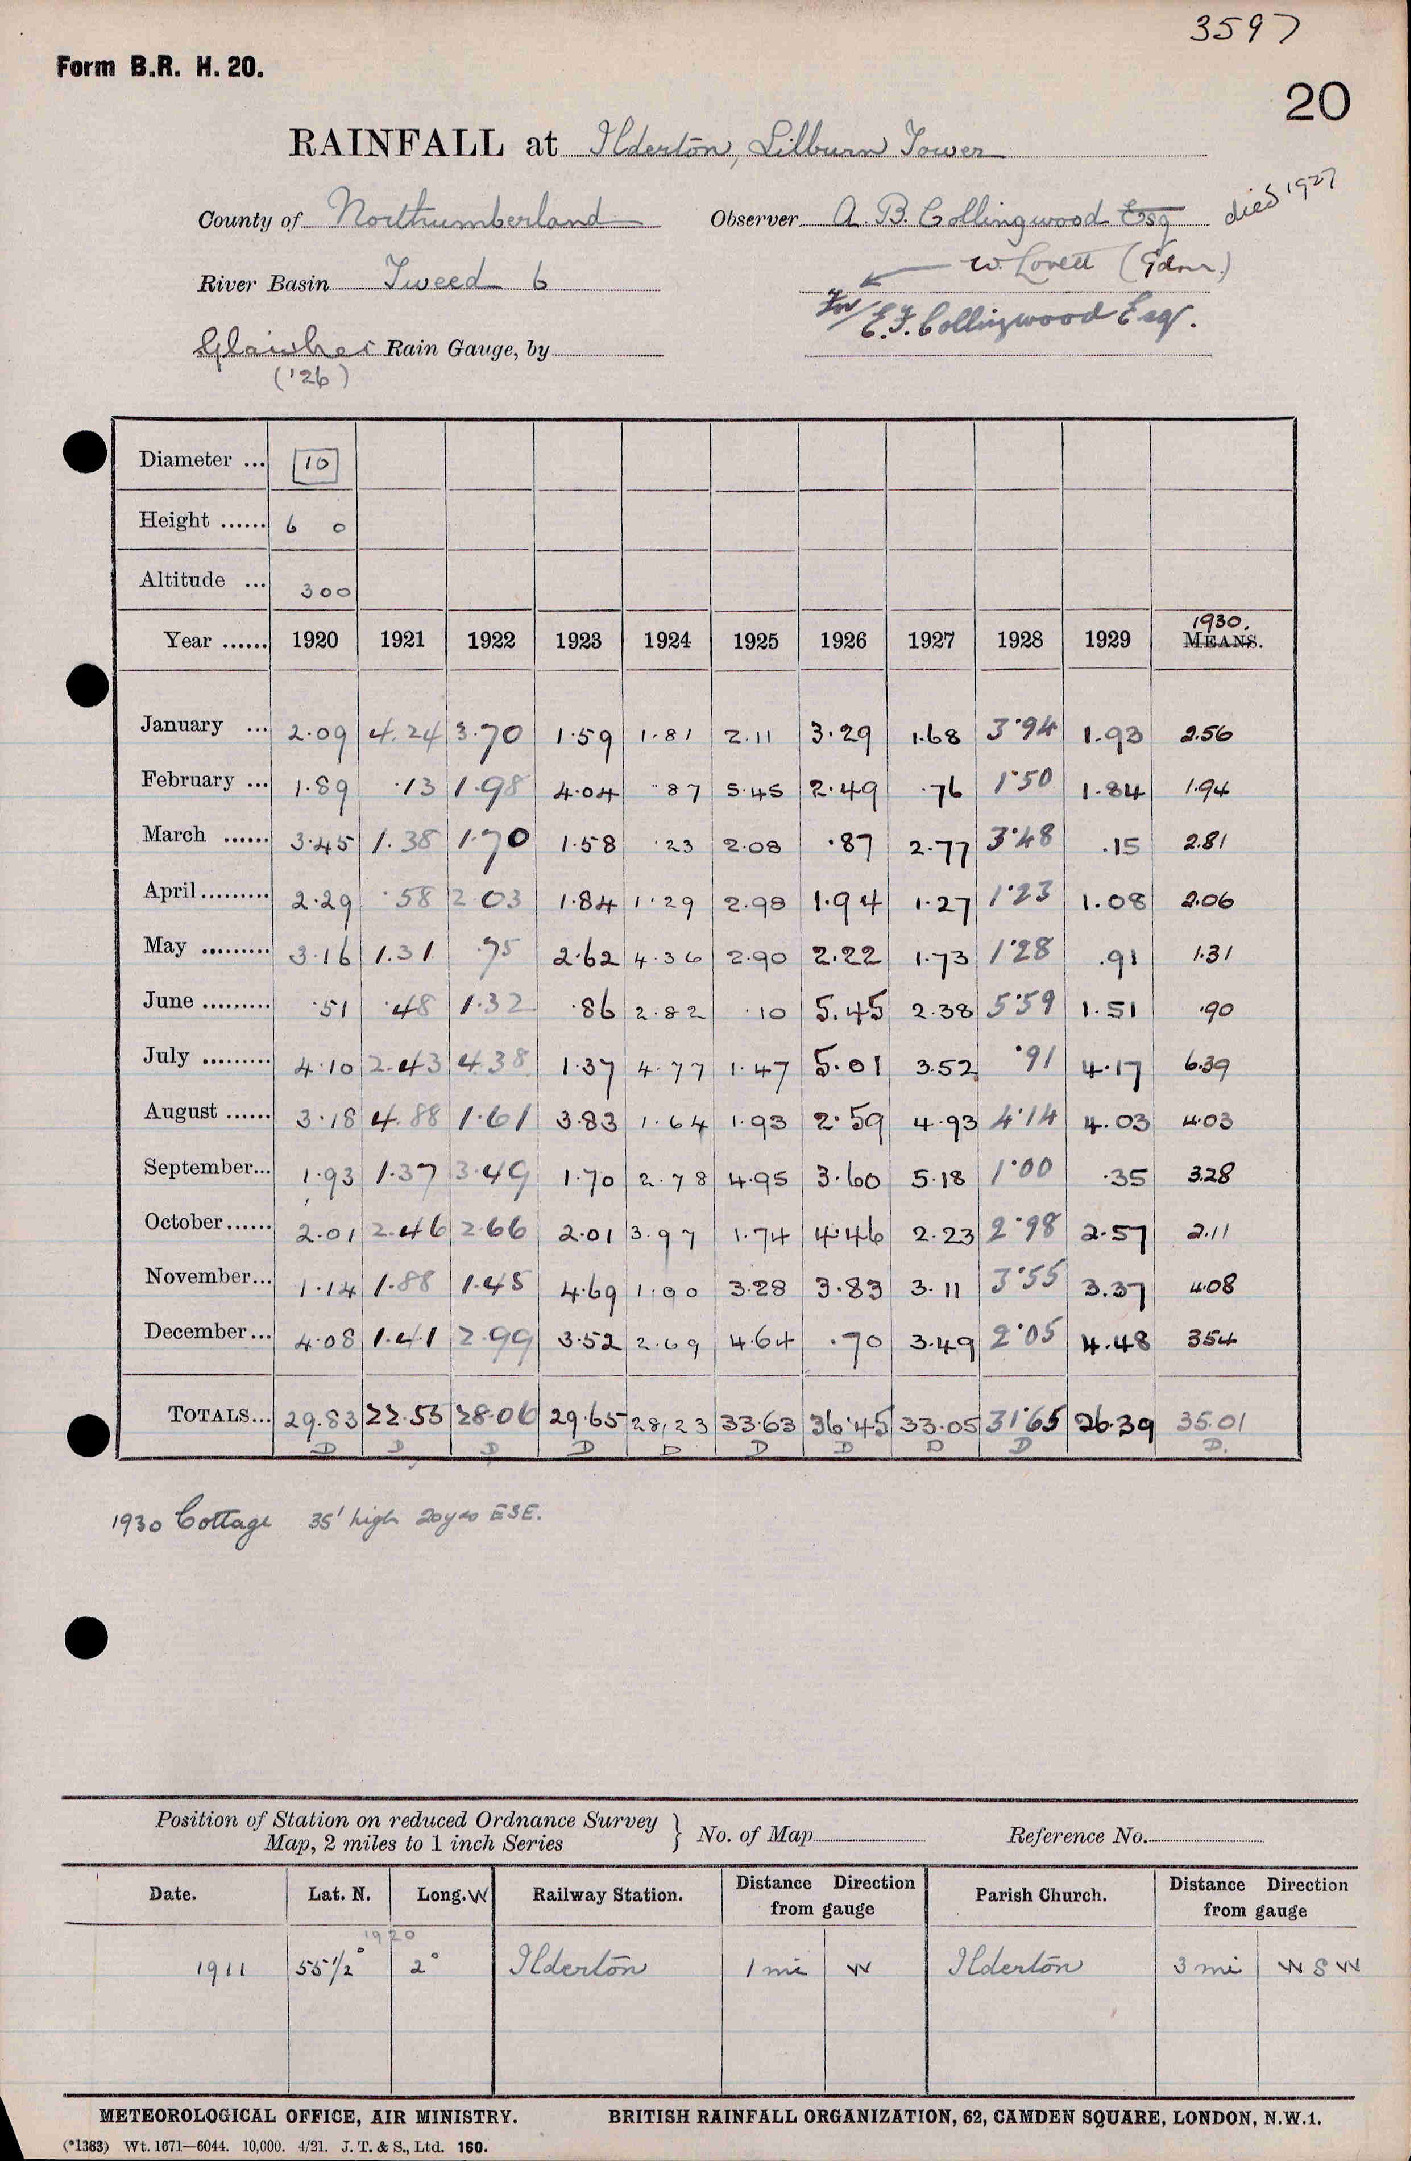 3597
Form B.R. H. 20.
20
RAINFALL at Ilderton, Lilburn Tower
County of Northumberland Observer A. B. Collingwood Esq died 1927
W. Lovett (Gdnr.)
River Basin Tweed 6
For/ E.F. Collingwood Esqr.
Glaisher Rain Gauge, by
('26)
Diameter ... 10
Height ...... 6 0
Altitude ... 300
1930.
Year ...... 1920 1921 1922 1923 1924 1925 1926 1927 1928 1929 MEANS.
January ... 2.09 4.24 3.70 1.59 1.81 2.11 3.29 1.68 3.94 1.93 2.56
February ... 1.89 .13 1.98 4.04 .87 5.45 2.49 .76 1.50 1.84 1.94
March ...... 3.45 1.38 1.70 1.58 .23 2.08 .87 2.77 3.48 .15 2.81
April ......... 2.29 .58 2.03 1.84 1.29 2.98 1.94 1.27 1.23 1.08 2.06
May ......... 3.16 1.31 .75 2.62 4.36 2.90 2.22 1.73 1.28 .91 1.31
June ......... .51 .48 1.32 .86 2.82 .10 5.45 2.38 5.59 1.51 .90
July ......... 4.10 2.43 4.38 1.37 4.77 1.47 5.01 3.52 .91 4.17 6.39
August ...... 3.18 4.88 1.61 3.83 1.64 1.93 2.59 4.93 4.14 4.03 4.03
September... 1.93 1.37 3.49 1.70 2.78 4.95 3.60 5.18 1.00 .35 3.28
October...... 2.01 2.46 2.66 2.01 3.97 1.74 4.46 2.23 2.98 2.57 2.11
November... 1.14 1.88 1.45 4.69 1.00 3.28 3.83 3.11 3.55 3.37 4.08
December... 4.08 1.41 2.99 3.52 2.69 4.64 .70 3.49 2.05 4.48 3.54
TOTALS... 29.83 22.55 28.06 29.65 28.23 33.63 36.45 33.05 31.65 26.39 35.01
D D D D D D D D D D.
1930 Cottage 35' high 20yds ESE.
Position of Station on reduced Ordnance Survey
Map, 2 miles to 1 inch Series } No. of Map Reference No.
Date. Lat. N. Long. W Railway Station. Distance Direction from gauge Parish Church. Distance Direction from gauge
1920
1911 55½° 2° Ilderton 1 mi W Ilderton 3 mi WSW
METEOROLOGICAL OFFICE, AIR MINISTRY. BRITISH RAINFALL ORGANIZATION, 62, CAMDEN SQUARE, LONDON, N.W.1.
(*1383) Wt. 1671—6044. 10,000. 4/21. J. T. & S., Ltd. 160.